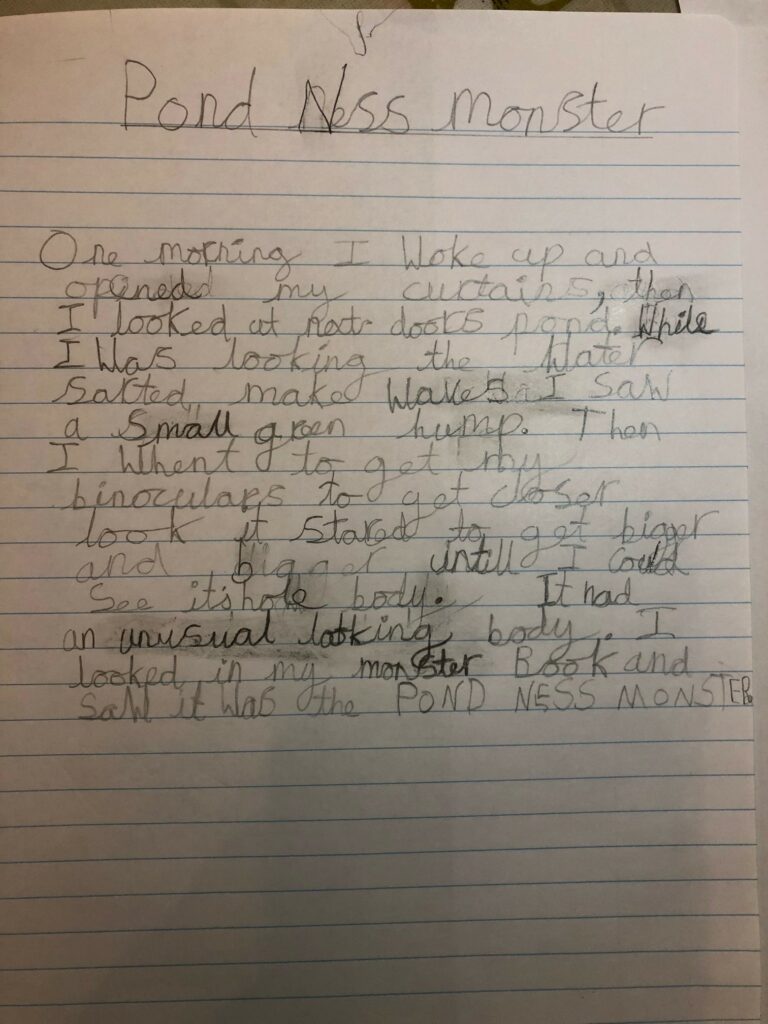 Pond Ness Monster
One morning I Woke up and
opened my curtains, then
I looked at next doors pond. While
I Was looking the Water
sarted make Waves. I Saw
a small green hump. Then
I Whent to get my
binoculars to get closer
look it stared to get bigger
and bigger untill I could
See it's hole body. It had
an unusual looking body. I
looked in my monster Book and
saw it Was the POND NESS MONSTER.